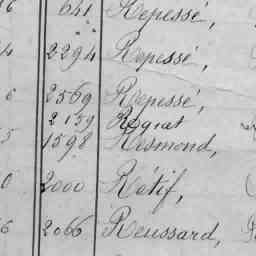 6 641 Repessé,
4 2294 Repessé,
6 2569 Repessé,
2159 Rogiat
5 1598 Resmond,
0 2000 Rétif,
6 2066 Reussard,